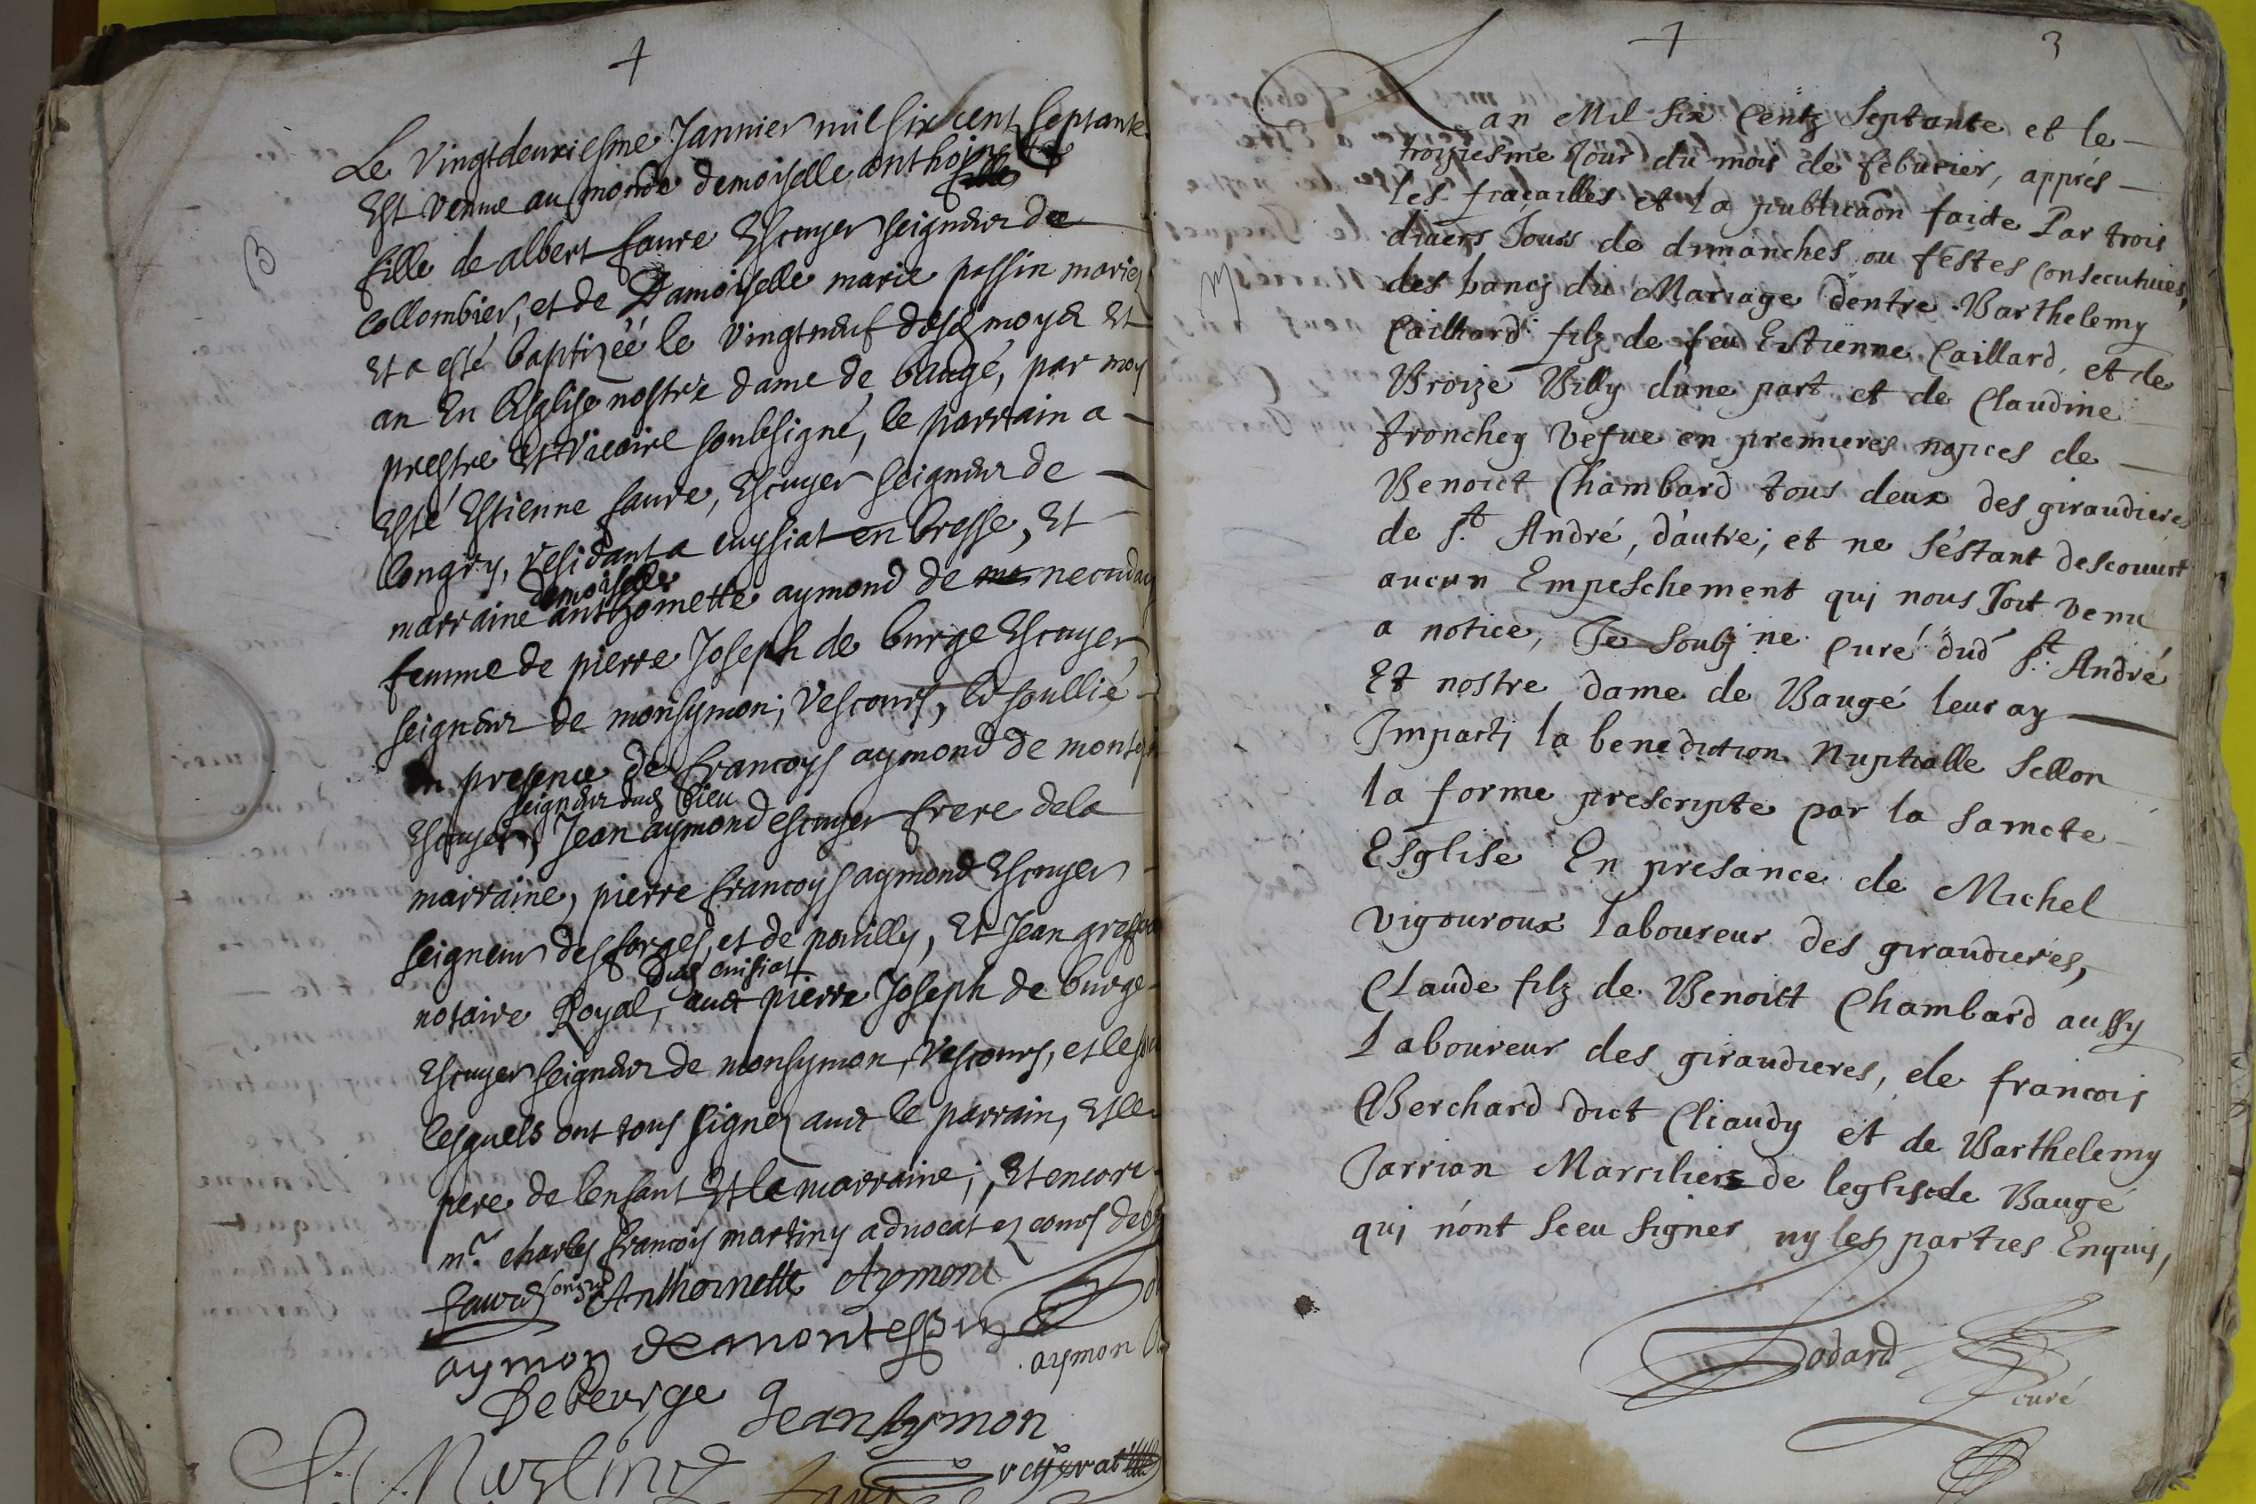 Le Vingtdeuxiesme Jannier mil six cent septante
Est venue au monde demoiselle anthoinette
fille de albert faure Escuyer seigneur de
Collombier, et de Damoiselle marie passin mariez
et a esté baptizéé le vingtneuf desd moys et
an En lEsglise nostre dame de baugé, par moy
prestre et Vicaire soubsigné, le parrain a
esté Estienne faure, Escuyer seigneur de
Longry, residant a cuysiat en bresse, Et
demoiselle
marraine anthoinette aymond de
femme de pierre Joseph de burge Escuyer
seigneur de monsymon, Vescours,
en presence de francoys aymond de
seigneur dud lieu
Escuyer, Jean aymond escuyer frere dela
marraine, pierre francoys aymond Escuyer
seigneur des forges, et de pouilly, Et Jean
dud cuisiat
notaire Royal, aud pierre Joseph de burge
Escuyer seigneur de monsymon, Vescours,
lesquels ont tous signez avec le parrain, Et le
pere de lenfant Et la marraine; Et encore
mr. charles francois martiny advocat ez cours
faure Longry Anthoinette Aymont
aymon de montespin
aymon
De beurge Jean Aymon
3
Lan Mil six Centz Septante et le
troiziesme Jour du mois de febvrier, apprés
les fiaçailles et la publicaon faicte Par trois
divers Jours de dimanches ou féstes Consecutives,
des bancs du Mariage dentre Barthelemy
Cailhard filz de feu Estienne Caillard, et de
Broize Billy dune part et de Claudine
fronchey vefue en premieres nopces de
Benoict Chambard tous deux des giraudieres
de St. André, dautre; et ne séstant descouvert
aucun Empeschement qui nous soit venu
a notice, Je soubz.ne Curé dud St. André
Et nostre dame de Baugé leur ay
Imparti la benediction Nuptialle Sellon
la forme prescripte par la Saincte
Esglise En presance de Michel
Vigouroux laboureur des giraudieres,
Claude filz de Benoist Chambard aussy
Laboureur des giraudieres, de francois
Berchard dict Cliaudy et de Barthelemy
Jarrian Marciliers de leglise de Baugé
qui nónt Sceu signer ny les parties Enquis,
curé